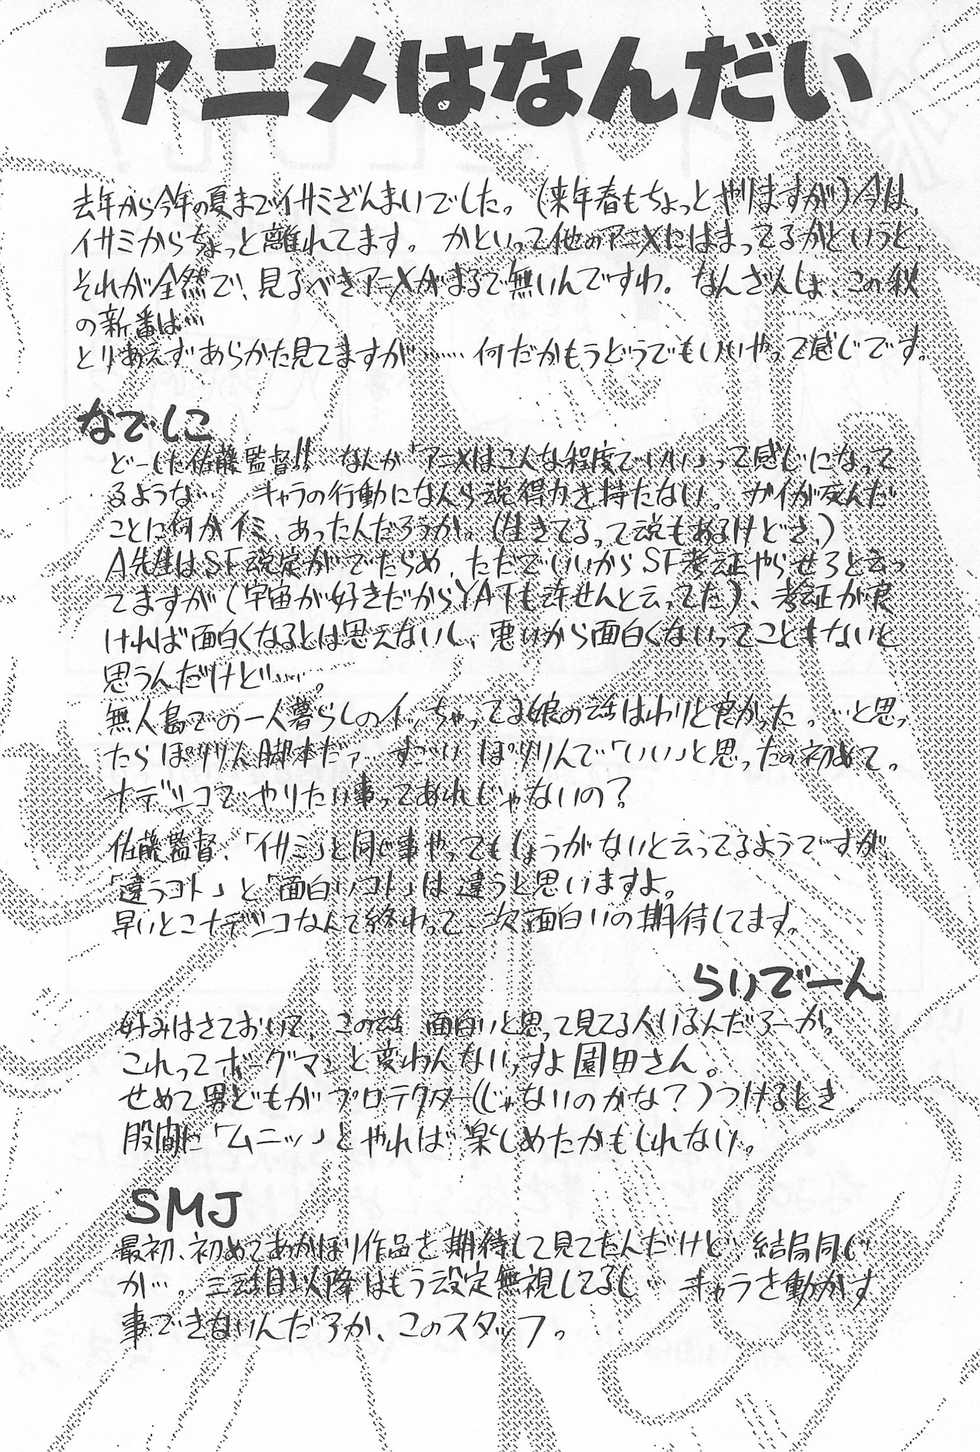 アニメはなんだい
去年から今年の夏までイサミざんまいでした。(来年春もちょっとやりますが)今は、
イサミからちょっと離れてます。かといって他のアニメにはまってるかというと、
それが全然で、見るべきアニメがまるで無いんですわ。なんざんしょ、この秋
の新番は…
とりあえずあらかた見てますが……何だかもうどうでもいいやって感じです。
なでしこ
どーした佐藤監督!! なんか「アニメはこんな程度でいい」って感じになって
るような… キャラの行動になんら説得力を持たない。ガイが死んだ
ことに何かイミ、あったんだろうか。(生きてるって説もあるけどさ。)
A先生はSF設定がでたらめ、ただでいいからSF考証やらせろと云っ
てますが(宇宙が好きだからYATも許せんと云ってた)、考証が良
ければ面白くなるとは思えないし、悪いから面白くないってこともないと
思うんだけど……。
無人島での一人暮らしのイッちゃってる娘の話はわりと良かった。…と思っ
たらぽりりん脚本だァ…すごい ぽりりんで「いい」と思ったの初めて。
ナデシコでやりたい事ってあれじゃないの?
佐藤監督、「イサミ」と同じ事やってもしょうがないと云ってるようですが、
「違うコト」と「面白いコト」は違うと思いますよ。
早いとこナデシコなんて終わって、次面白いの期待してます。
らいでーん
好みはさておいて、この話 面白いと思って見てる人いるんだろーか。
これってボーグマンと変わんないっすよ園田さん。
せめて男どもがプロテクター(じゃないのかな?)つけるとき
股間に「ムニッ」とやれば楽しめたかもしれない。
SMJ
最初、初めてあかほり作品を期待して見てたんだけど 結局同じ
か…。三話目以降はもう設定無視してるし… キャラを動かす
事できないんだろか、このスタッフ。